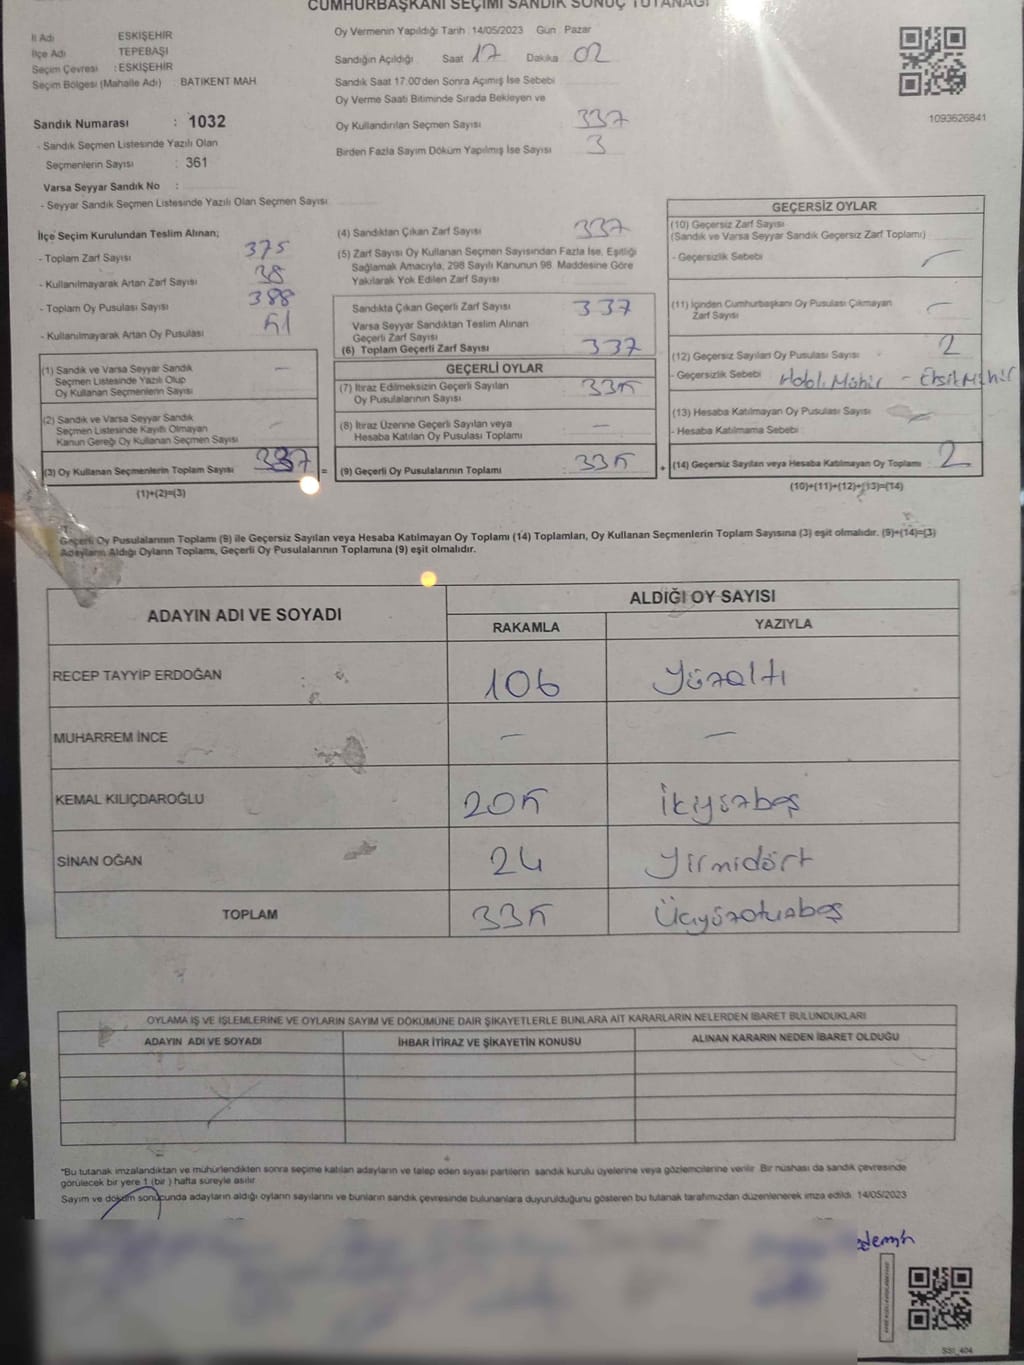 CUMHURBAŞKANI SEÇİMİ SANDIK SONUÇ TUTANAĞI
İl Adı ESKİŞEHİR
İlçe Adı TEPEBAŞI
Seçim Çevresi : ESKİŞEHİR
Seçim Bölgesi (Mahalle Adı) : BATIKENT MAH
Oy Vermenin Yapıldığı Tarih : 14/05/2023 Gün : Pazar
Sandığın Açıldığı Saat 17 Dakika 02
Sandık Saat 17.00'den Sonra Açılmış İse Sebebi
Oy Verme Saati Bitiminde Sırada Bekleyen ve
Oy Kullandırılan Seçmen Sayısı 337
Birden Fazla Sayım Döküm Yapılmış İse Sayısı 3
1093626841
Sandık Numarası : 1032
- Sandık Seçmen Listesinde Yazılı Olan
Seçmenlerin Sayısı : 361
Varsa Seyyar Sandık No :
- Seyyar Sandık Seçmen Listesinde Yazılı Olan Seçmen Sayısı
İlçe Seçim Kurulundan Teslim Alınan;
- Toplam Zarf Sayısı 375
- Kullanılmayarak Artan Zarf Sayısı 38
- Toplam Oy Pusulası Sayısı 388
- Kullanılmayarak Artan Oy Pusulası 51
(1) Sandık ve Varsa Seyyar Sandık
Seçmen Listesinde Yazılı Olup
Oy Kullanan Seçmenlerin Sayısı —
(2) Sandık ve Varsa Seyyar Sandık
Seçmen Listesinde Kayıtlı Olmayan
Kanun Gereği Oy Kullanan Seçmen Sayısı —
(3) Oy Kullanan Seçmenlerin Toplam Sayısı 337 =
(1)+(2)=(3)
(4) Sandıktan Çıkan Zarf Sayısı 337
(5) Zarf Sayısı Oy Kullanan Seçmen Sayısından Fazla İse, Eşitliği
Sağlamak Amacıyla, 298 Sayılı Kanunun 98. Maddesine Göre
Yakılarak Yok Edilen Zarf Sayısı
Sandıkta Çıkan Geçerli Zarf Sayısı 337
Varsa Seyyar Sandıktan Teslim Alınan
Geçerli Zarf Sayısı
(6) Toplam Geçerli Zarf Sayısı 337
GEÇERLİ OYLAR
(7) İtiraz Edilmeksizin Geçerli Sayılan
Oy Pusulalarının Sayısı 335
(8) İtiraz Üzerine Geçerli Sayılan veya
Hesaba Katılan Oy Pusulası Toplamı —
(9) Geçerli Oy Pusulalarının Toplamı 335 +
GEÇERSİZ OYLAR
(10) Geçersiz Zarf Sayısı
(Sandık ve Varsa Seyyar Sandık Geçersiz Zarf Toplamı)
- Geçersizlik Sebebi —
(11) İçinden Cumhurbaşkanı Oy Pusulası Çıkmayan
Zarf Sayısı —
(12) Geçersiz Sayılan Oy Pusulası Sayısı 2
- Geçersizlik Sebebi - Eksik Mühür
(13) Hesaba Katılmayan Oy Pusulası Sayısı
- Hesaba Katılmama Sebebi
(14) Geçersiz Sayılan veya Hesaba Katılmayan Oy Toplamı 2
(10)+(11)+(12)+(13)=(14)
Geçerli Oy Pusulalarının Toplamı (9) ile Geçersiz Sayılan veya Hesaba Katılmayan Oy Toplamı (14) Toplamları, Oy Kullanan Seçmenlerin Toplam Sayısına (3) eşit olmalıdır. (9)+(14)=(3)
Adayların Aldığı Oyların Toplamı, Geçerli Oy Pusulalarının Toplamına (9) eşit olmalıdır.
ADAYIN ADI VE SOYADI ALDIĞI OY SAYISI
RAKAMLA YAZIYLA
RECEP TAYYİP ERDOĞAN 106 Yüzaltı
MUHARREM İNCE — —
KEMAL KILIÇDAROĞLU 205 İkiyüzbeş
SİNAN OĞAN 24 Yirmidört
TOPLAM 335 Üçyüzotuzbeş
OYLAMA İŞ VE İŞLEMLERİNE VE OYLARIN SAYIM VE DÖKÜMÜNE DAİR ŞİKAYETLERLE BUNLARA AİT KARARLARIN NELERDEN İBARET BULUNDUKLARI
ADAYIN ADI VE SOYADI İHBAR İTİRAZ VE ŞİKAYETİN KONUSU ALINAN KARARIN NEDEN İBARET OLDUĞU
*Bu tutanak imzalandıktan ve mühürlendikten sonra seçime katılan adayların ve talep eden siyasi partilerin sandık kurulu üyelerine veya gözlemcilerine verilir. Bir nüshası da sandık çevresinde
görülecek bir yere 1 (bir) hafta süreyle asılır.
Sayım ve döküm sonucunda adayların aldığı oyların sayılarını ve bunların sandık çevresinde bulunanlara duyurulduğunu gösteren bu tutanak tarafımızdan düzenlenerek imza edildi. 14/05/2023
SSI_404